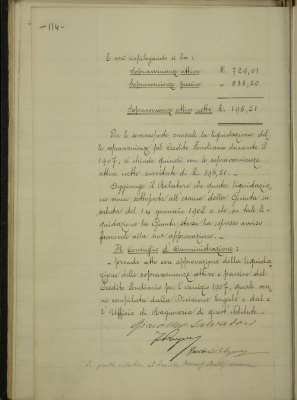 -114-
E così riepilogando si ha:
Sopravvenienze attive £. 729,01
Sopravvenienze passive " 533,20
Sopravvenienze attive nette £. 195,21
Per le suesposte causali la liquidazione del
le sopravvenienze pel Credito Fondiario durante il
1907, si chiude quindi con le sopravvenienze
attive nette suindicate di £. 195,21.-
Aggiunge il Relatore che questa liquidazio
ne venne sottoposta all'esame della Giunta in
seduta del 14 gennaio 1908 e che in tale li
quidazione la Giunta stessa ha espresso avviso
favorevole alla sua approvazione.-
Il Consiglio di Amministrazione:
- prende atto con approvazione della liquida
zione delle sopravvenienze attive e passive del
Credito Fondiario per l'esercizio 1907, quale ven
ne compilata dalla Divisione Legale e dal
l'Ufficio di Ragioneria di quest'Istituto.-
Giacomo Salvadori